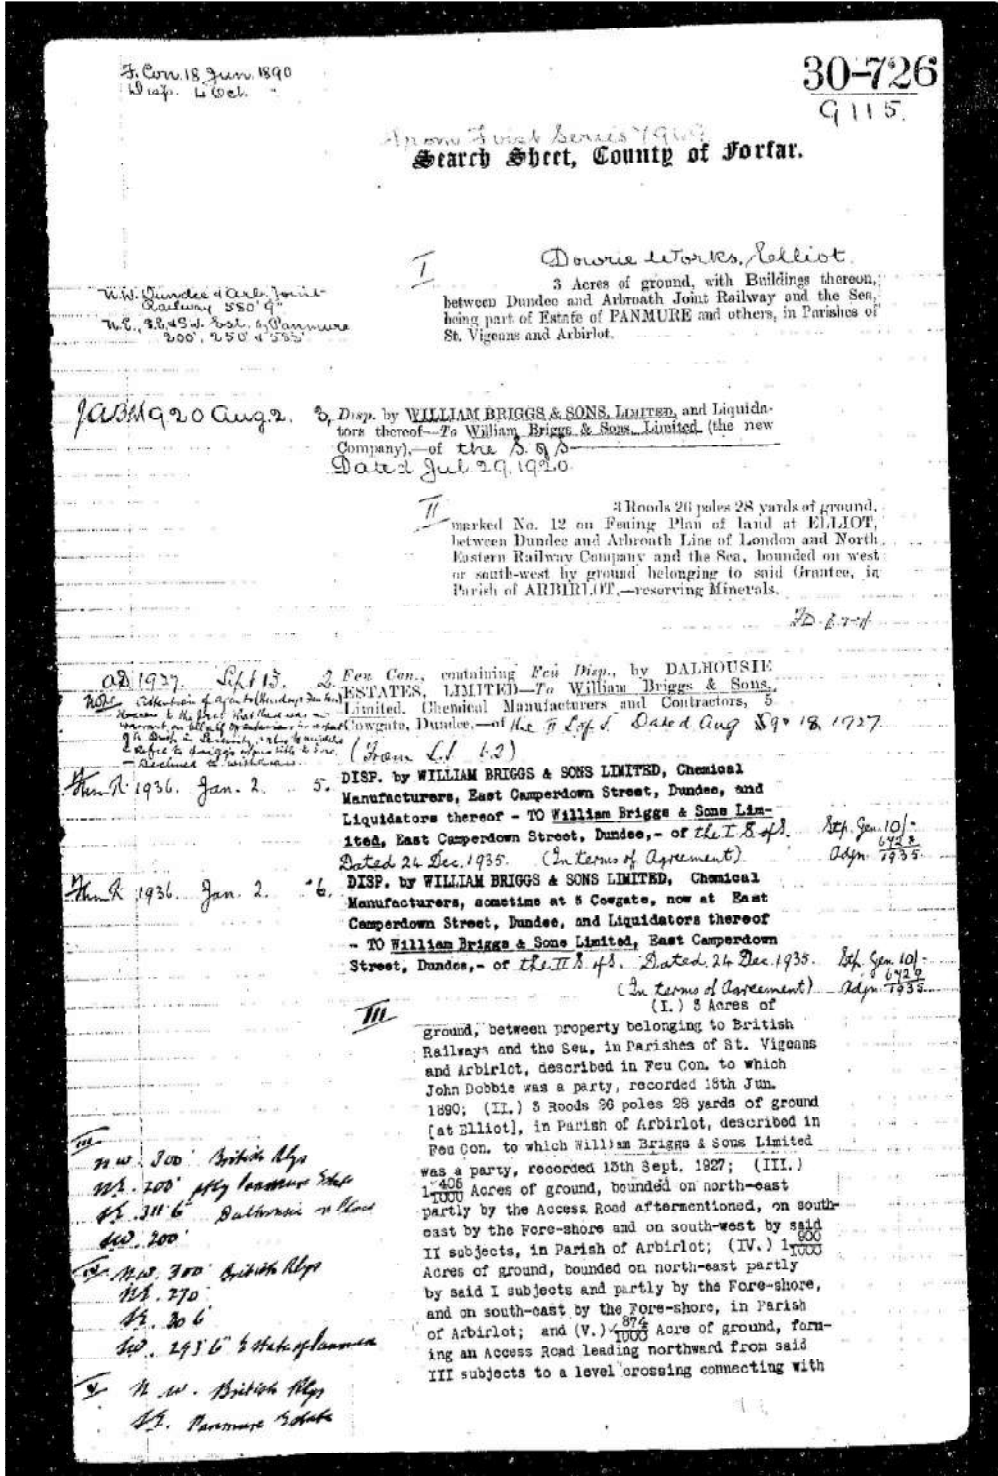 F. Con. 18 Jun. 1890
Disp. 4 Oct. "
30-726
9115.
From First Series
Search Sheet, County of Forfar.
I
Dowrie Works, Elliot.
3 Acres of ground, with Buildings thereon,
between Dundee and Arbroath Joint Railway and the Sea,
being part of Estate of PANMURE and others, in Parishes of
St. Vigeans and Arbirlot.
N.W. Dundee & Arb. Joint
Railway 580' 9"
N.E., S.E. & S.W. Est. of Panmure
200', 250' & 583'
1920 Aug. 2. 3, Disp. by WILLIAM BRIGGS & SONS, LIMITED, and Liquida-
tors thereof—To William Briggs & Sons, Limited (the new
Company),—of the S. of S
Dated Jul 29, 1920.
II
3 Roods 26 poles 28 yards of ground,
marked No. 12 on Feuing Plan of land at ELLIOT,
between Dundee and Arbroath Line of London and North
Eastern Railway Company and the Sea, bounded on west
or south-west by ground belonging to said Grantee, in
Parish of ARBIRLOT,—reserving Minerals.
1927. Sept 13. 2. Feu Con., containing Feu Disp., by DALHOUSIE
ESTATES, LIMITED—To William Briggs & Sons,
Limited. Chemical Manufacturers and Contractors, 5
Cowgate, Dundee,—of the II S. of S. Dated Aug 18, 1927.
Note
(From
1936. Jan. 2. 5. DISP. by WILLIAM BRIGGS & SONS LIMITED, Chemical
Manufacturers, East Camperdown Street, Dundee, and
Liquidators thereof - TO William Briggs & Sons Lim-
ited, East Camperdown Street, Dundee,- of the I S of S.
Dated 24 Dec. 1935. (In terms of Agreement)
Stp. Gen. 10/-
Adjn. 1935
1936. Jan. 2. 6. DISP. by WILLIAM BRIGGS & SONS LIMITED, Chemical
Manufacturers, sometime at 5 Cowgate, now at East
Camperdown Street, Dundee, and Liquidators thereof
- TO William Briggs & Sons Limited, East Camperdown
Street, Dundee,- of the II S of S. Dated 24 Dec. 1935.
(In terms of Agreement)
Stp. Gen 10/-
Adjn. 1935
III
(I.) 3 Acres of
ground, between property belonging to British
Railways and the Sea, in Parishes of St. Vigeans
and Arbirlot, described in Feu Con. to which
John Dobbie was a party, recorded 18th Jun.
1890; (II.) 3 Roods 26 poles 28 yards of ground
[at Elliot], in Parish of Arbirlot, described in
Feu Con. to which William Briggs & Sons Limited
was a party, recorded 13th Sept. 1927; (III.)
1 406/1000 Acres of ground, bounded on north-east
partly by the Access Road aftermentioned, on south-
east by the Fore-shore and on south-west by said
II subjects, in Parish of Arbirlot; (IV.) 1 900/1000
Acres of ground, bounded on north-east partly
by said I subjects and partly by the Fore-shore,
and on south-east by the Fore-shore, in Parish
of Arbirlot; and (V.) 874/1000 Acre of ground, form-
ing an Access Road leading northward from said
III subjects to a level crossing connecting with
III
N.W. 300' British Rlys
N.E. 200' ptly Panmure Estate
S.E. 311' 6"
S.W. 200'
N.W. 300' British Rlys
N.E. 270'
S.E. 306'
S.W. 293' 6" Estate of Panmure
V
N.W. British Rlys
S.E. Panmure Estate